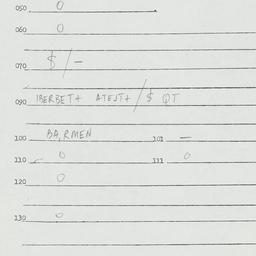 050 0
060 0
070 $/-
090 IBERBET+ ATEJT+/$ QT
100 BA,RMEN 101 -
110 0 111 0
120 0
130 0